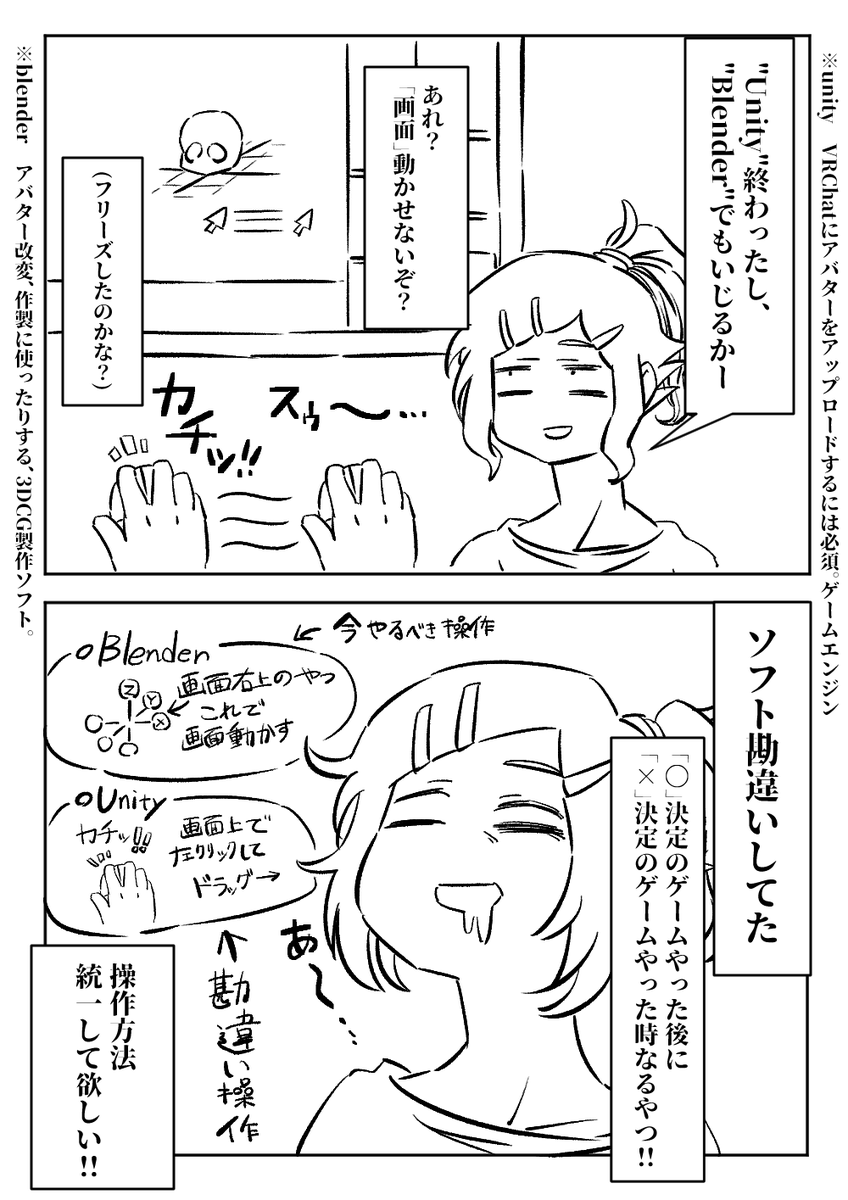 ※unity　VRChatにアバターをアップロードするには必須。ゲームエンジン
"Unity"終わったし、
"Blender"でもいじるかー
あれ？
「画面」動かせないぞ？
（フリーズしたのかな？）
スゥ〜…
カチッ!!
※blender　アバター改変、作製に使ったりする、3DCG製作ソフト。
ソフト勘違いしてた
「〇」決定のゲームやった後に
「×」決定のゲームやった時なるやつ!!
←今やるべき操作
○Blender
Z
Y
X
←画面右上のやつ
これで
画面動かす
○Unity
カチッ!!
画面上で
左クリックして
ドラッグ→
↑勘違い操作
あ〜…
操作方法
統一して欲しい!!